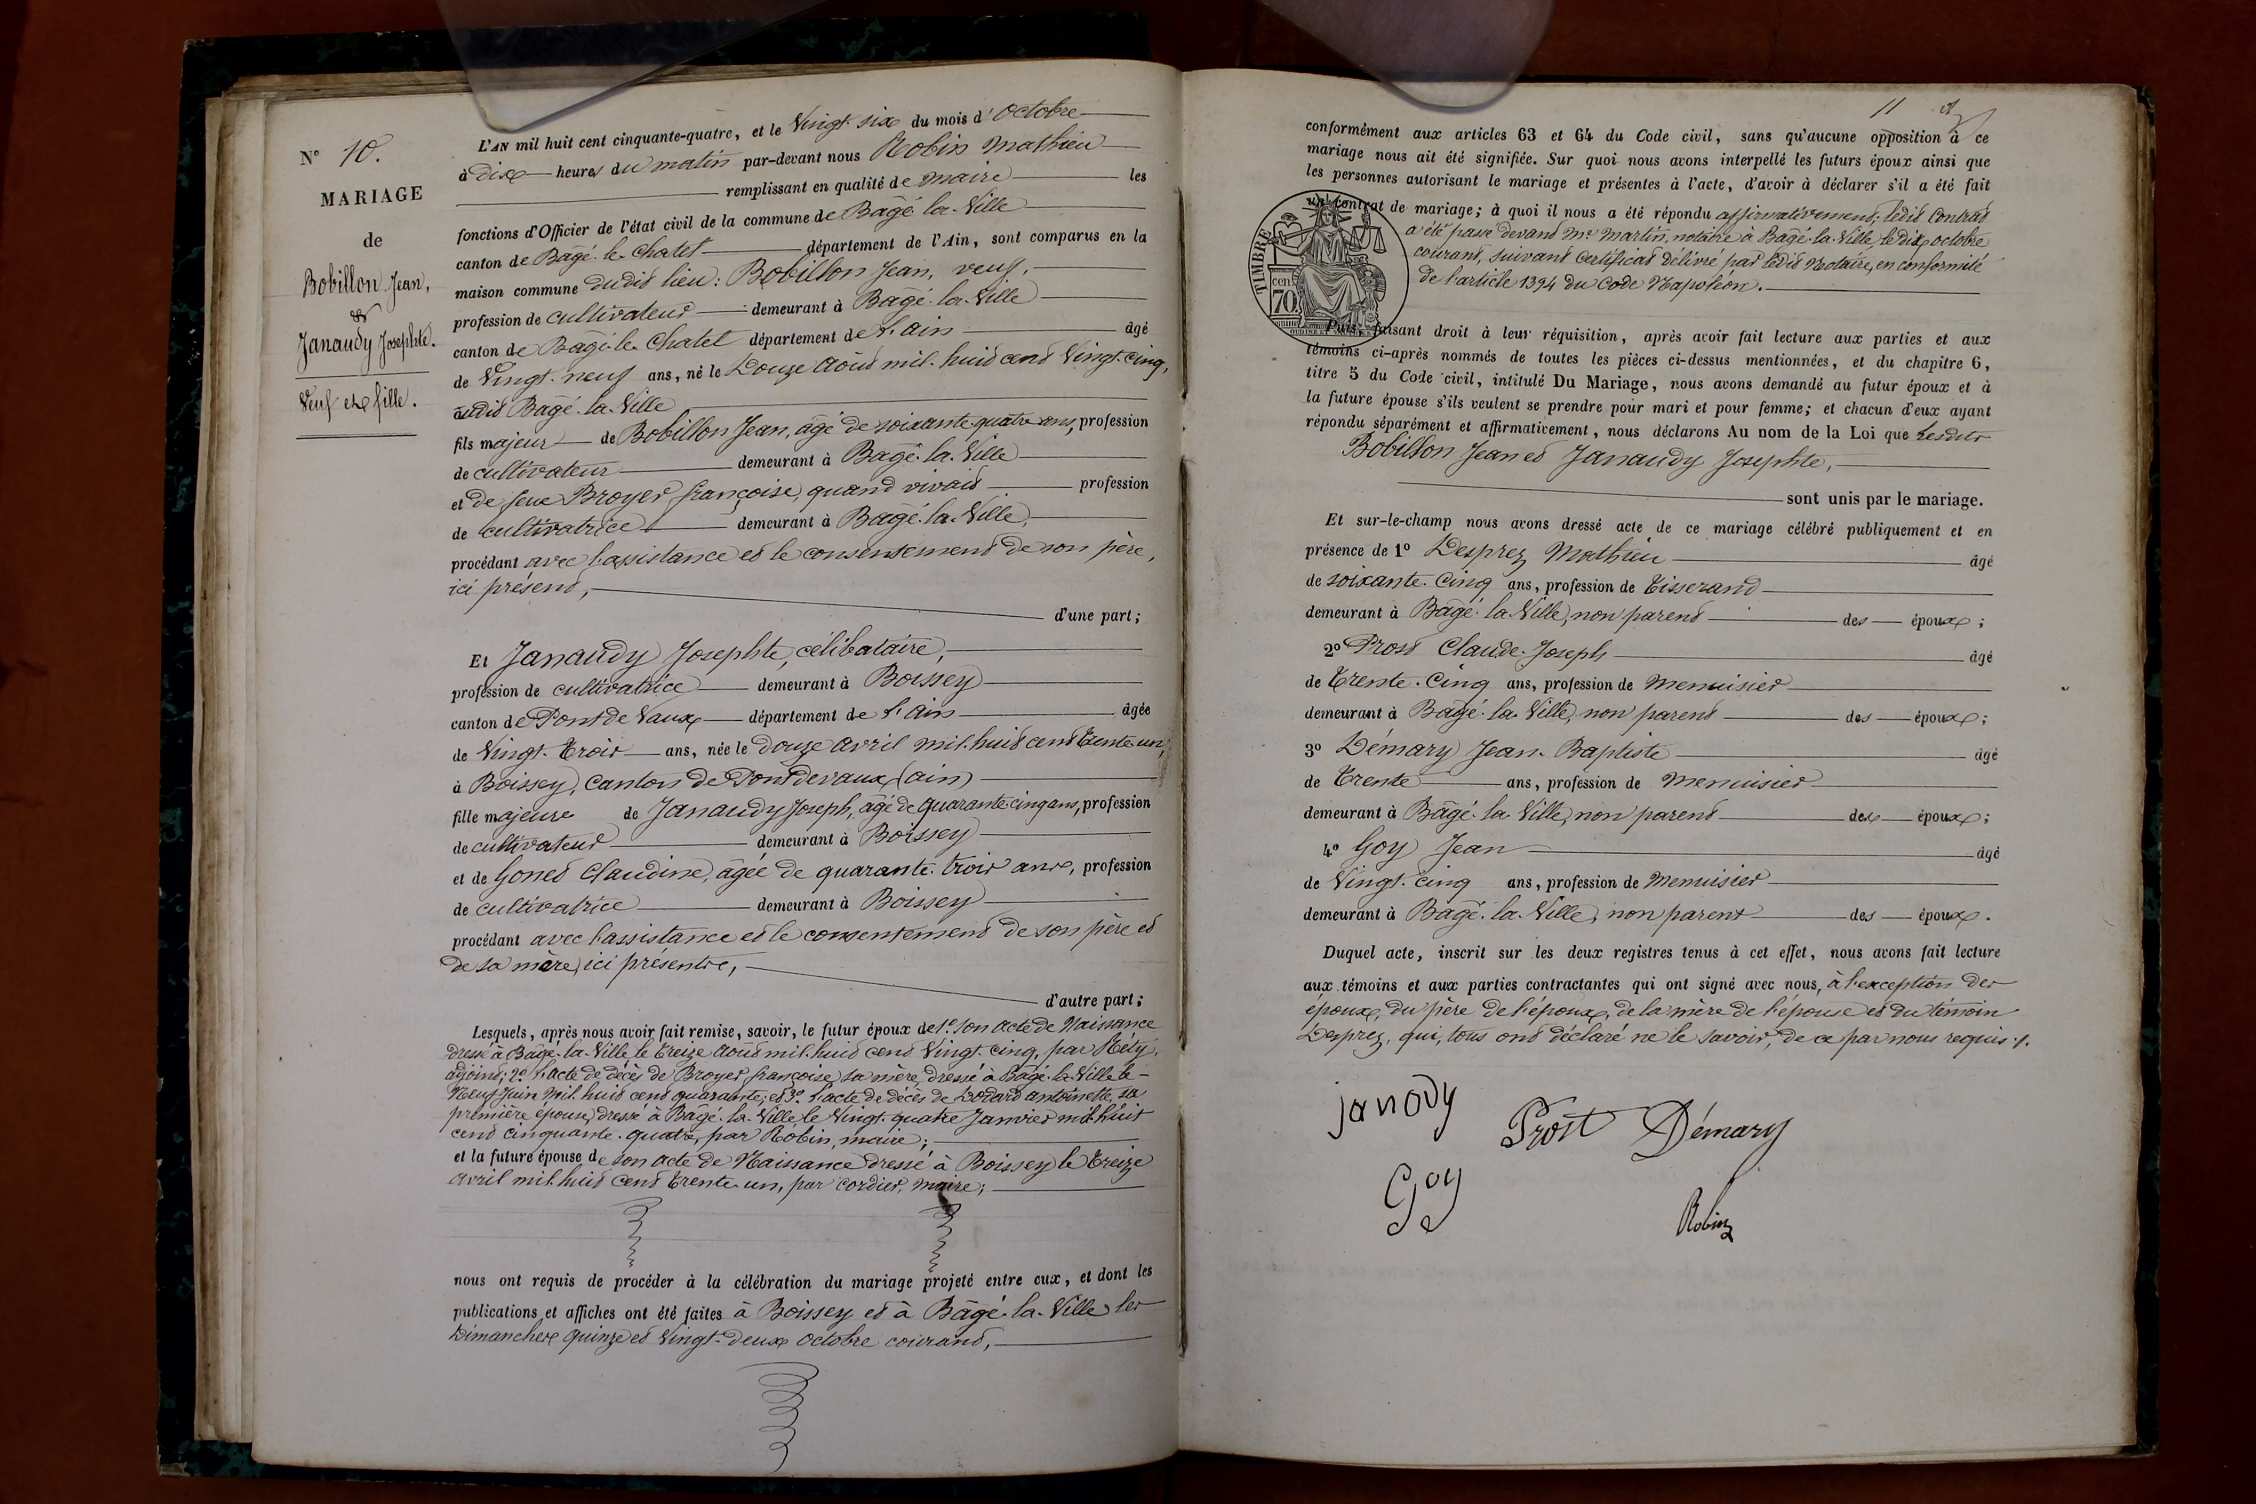 N° 10.
MARIAGE
de
Bobillon Jean,
&
Janaudy Josephte.
Veuf et fille.
L'AN mil huit cent cinquante-quatre, et le Vingt-six du mois d'Octobre
à dix heures du matin par-devant nous Robin Mathieu
remplissant en qualité de maire les
fonctions d'Officier de l'état civil de la commune de Bâgé-la-Ville
canton de Bâgé-le-Chatel département de l'Ain, sont comparus en la
maison commune dudit lieu: Bobillon Jean, veuf,
profession de cultivateur demeurant à Bâgé-la-Ville
canton de Bâgé-le-Chatel département de l'ain âgé
de Vingt-neuf ans, né le Douze août mil-huit cent Vingt-cinq,
audit Bâgé-la-Ville
fils majeur de Bobillon Jean, âgé de soixante-quatre ans, profession
de cultivateur demeurant à Bâgé-la-Ville
et de feue Broyer françoise, quand vivait profession
de cultivatrice demeurant à Bâgé-la-Ville,
procédant avec l'assistance et le consentement de son père,
ici présent,
d'une part;
Et Janaudy Josephte, célibataire,
profession de cultivatrice demeurant à Boissey
canton de Pont de Vaux département de l'ain âgée
de Vingt-trois ans, née le douze avril mil-huit cent trente-un,
à Boissey, canton de Pontdevaux (ain)
fille majeure de Janaudy Joseph, âgé de quarante-cinq ans, profession
de cultivateur demeurant à Boissey
et de Gonet Claudine, âgée de quarante-trois ans, profession
de cultivatrice demeurant à Boissey
procédant avec l'assistance et le consentement de son père et
de sa mère, ici présents,
d'autre part;
Lesquels, après nous avoir fait remise, savoir, le futur époux de 1° son acte de Naissance
dressé à Bâgé-la-Ville le treize août mil-huit cent Vingt-cinq, par Réty,
adjoint; 2° l'acte de décès de Broyer françoise, sa mère, dressé à Bâgé-la-Ville le
Neuf Juin mil-huit cent quarante; et 3° l'acte de décès de antoinette, sa
première épouse, dressé à Bâgé-la-Ville le Vingt-quatre Janvier mil-huit
cent cinquante-quatre, par Robin, maire;
et la future épouse de son acte de Naissance dressé à Boissey le treize
avril mil-huit cent trente-un, par cordier, maire;
nous ont requis de procéder à la célébration du mariage projeté entre eux, et dont les
publications et affiches ont été faites à Boissey et à Bâgé-la-Ville les
Dimanches quinze et Vingt-deux octobre courant,
11
conformément aux articles 63 et 64 du Code civil, sans qu'aucune opposition à ce
mariage nous ait été signifiée. Sur quoi nous avons interpellé les futurs époux ainsi que
les personnes autorisant le mariage et présentes à l'acte, d'avoir à déclarer s'il a été fait
un contrat de mariage; à quoi il nous a été répondu affirmativement; ledit Contrat
a été passé devant Me Martin, notaire à Bâgé-la-Ville, le dix octobre
courant, suivant Certificat délivré par ledit Notaire, en conformité
de l'article 1394 du Code Napoléon.
TIMBRE
70 cen
Puis, faisant droit à leur réquisition, après avoir fait lecture aux parties et aux
témoins ci-après nommés de toutes les pièces ci-dessus mentionnées, et du chapitre 6,
titre 5 du Code civil, intitulé Du Mariage, nous avons demandé au futur époux et à
la future épouse s'ils veulent se prendre pour mari et pour femme; et chacun d'eux ayant
répondu séparément et affirmativement, nous déclarons Au nom de la Loi que Lesdits
Bobillon Jean et Janaudy Josephte,
sont unis par le mariage.
Et sur-le-champ nous avons dressé acte de ce mariage célébré publiquement et en
présence de 1° Desprez Mathieu âgé
de soixante-cinq ans, profession de Tisserand
demeurant à Bâgé-la-Ville, non parent des époux;
2° Prost Claude-Joseph âgé
de Trente-Cinq ans, profession de Menuisier
demeurant à Bâgé-la-Ville, non parent des époux;
3° Démary Jean-Baptiste âgé
de Trente ans, profession de Menuisier
demeurant à Bâgé-la-Ville, non parent des époux;
4° Goy Jean âgé
de Vingt-cinq ans, profession de Menuisier
demeurant à Bâgé-la-Ville, non parent des époux.
Duquel acte, inscrit sur les deux registres tenus à cet effet, nous avons fait lecture
aux témoins et aux parties contractantes qui ont signé avec nous, à l'exception des
époux, du père de l'époux, de la mère de l'épouse et du témoin
Desprez, qui, tous ont déclaré ne le savoir, de ce par nous requis./.
janody
Prost Démary
Goy
Robin